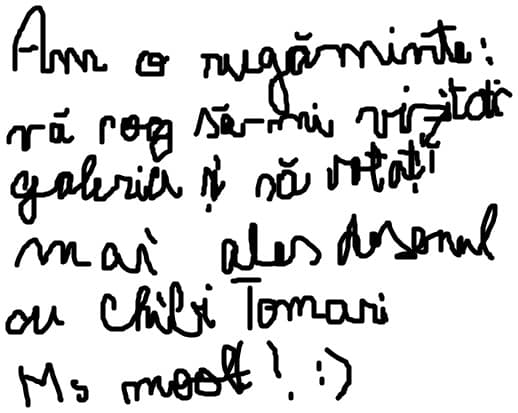 Am o rugăminte:
vă rog să-mi vizitați
galeria și să votați
mai ales desenul
cu Chibi Tomari
Ms mult! :)